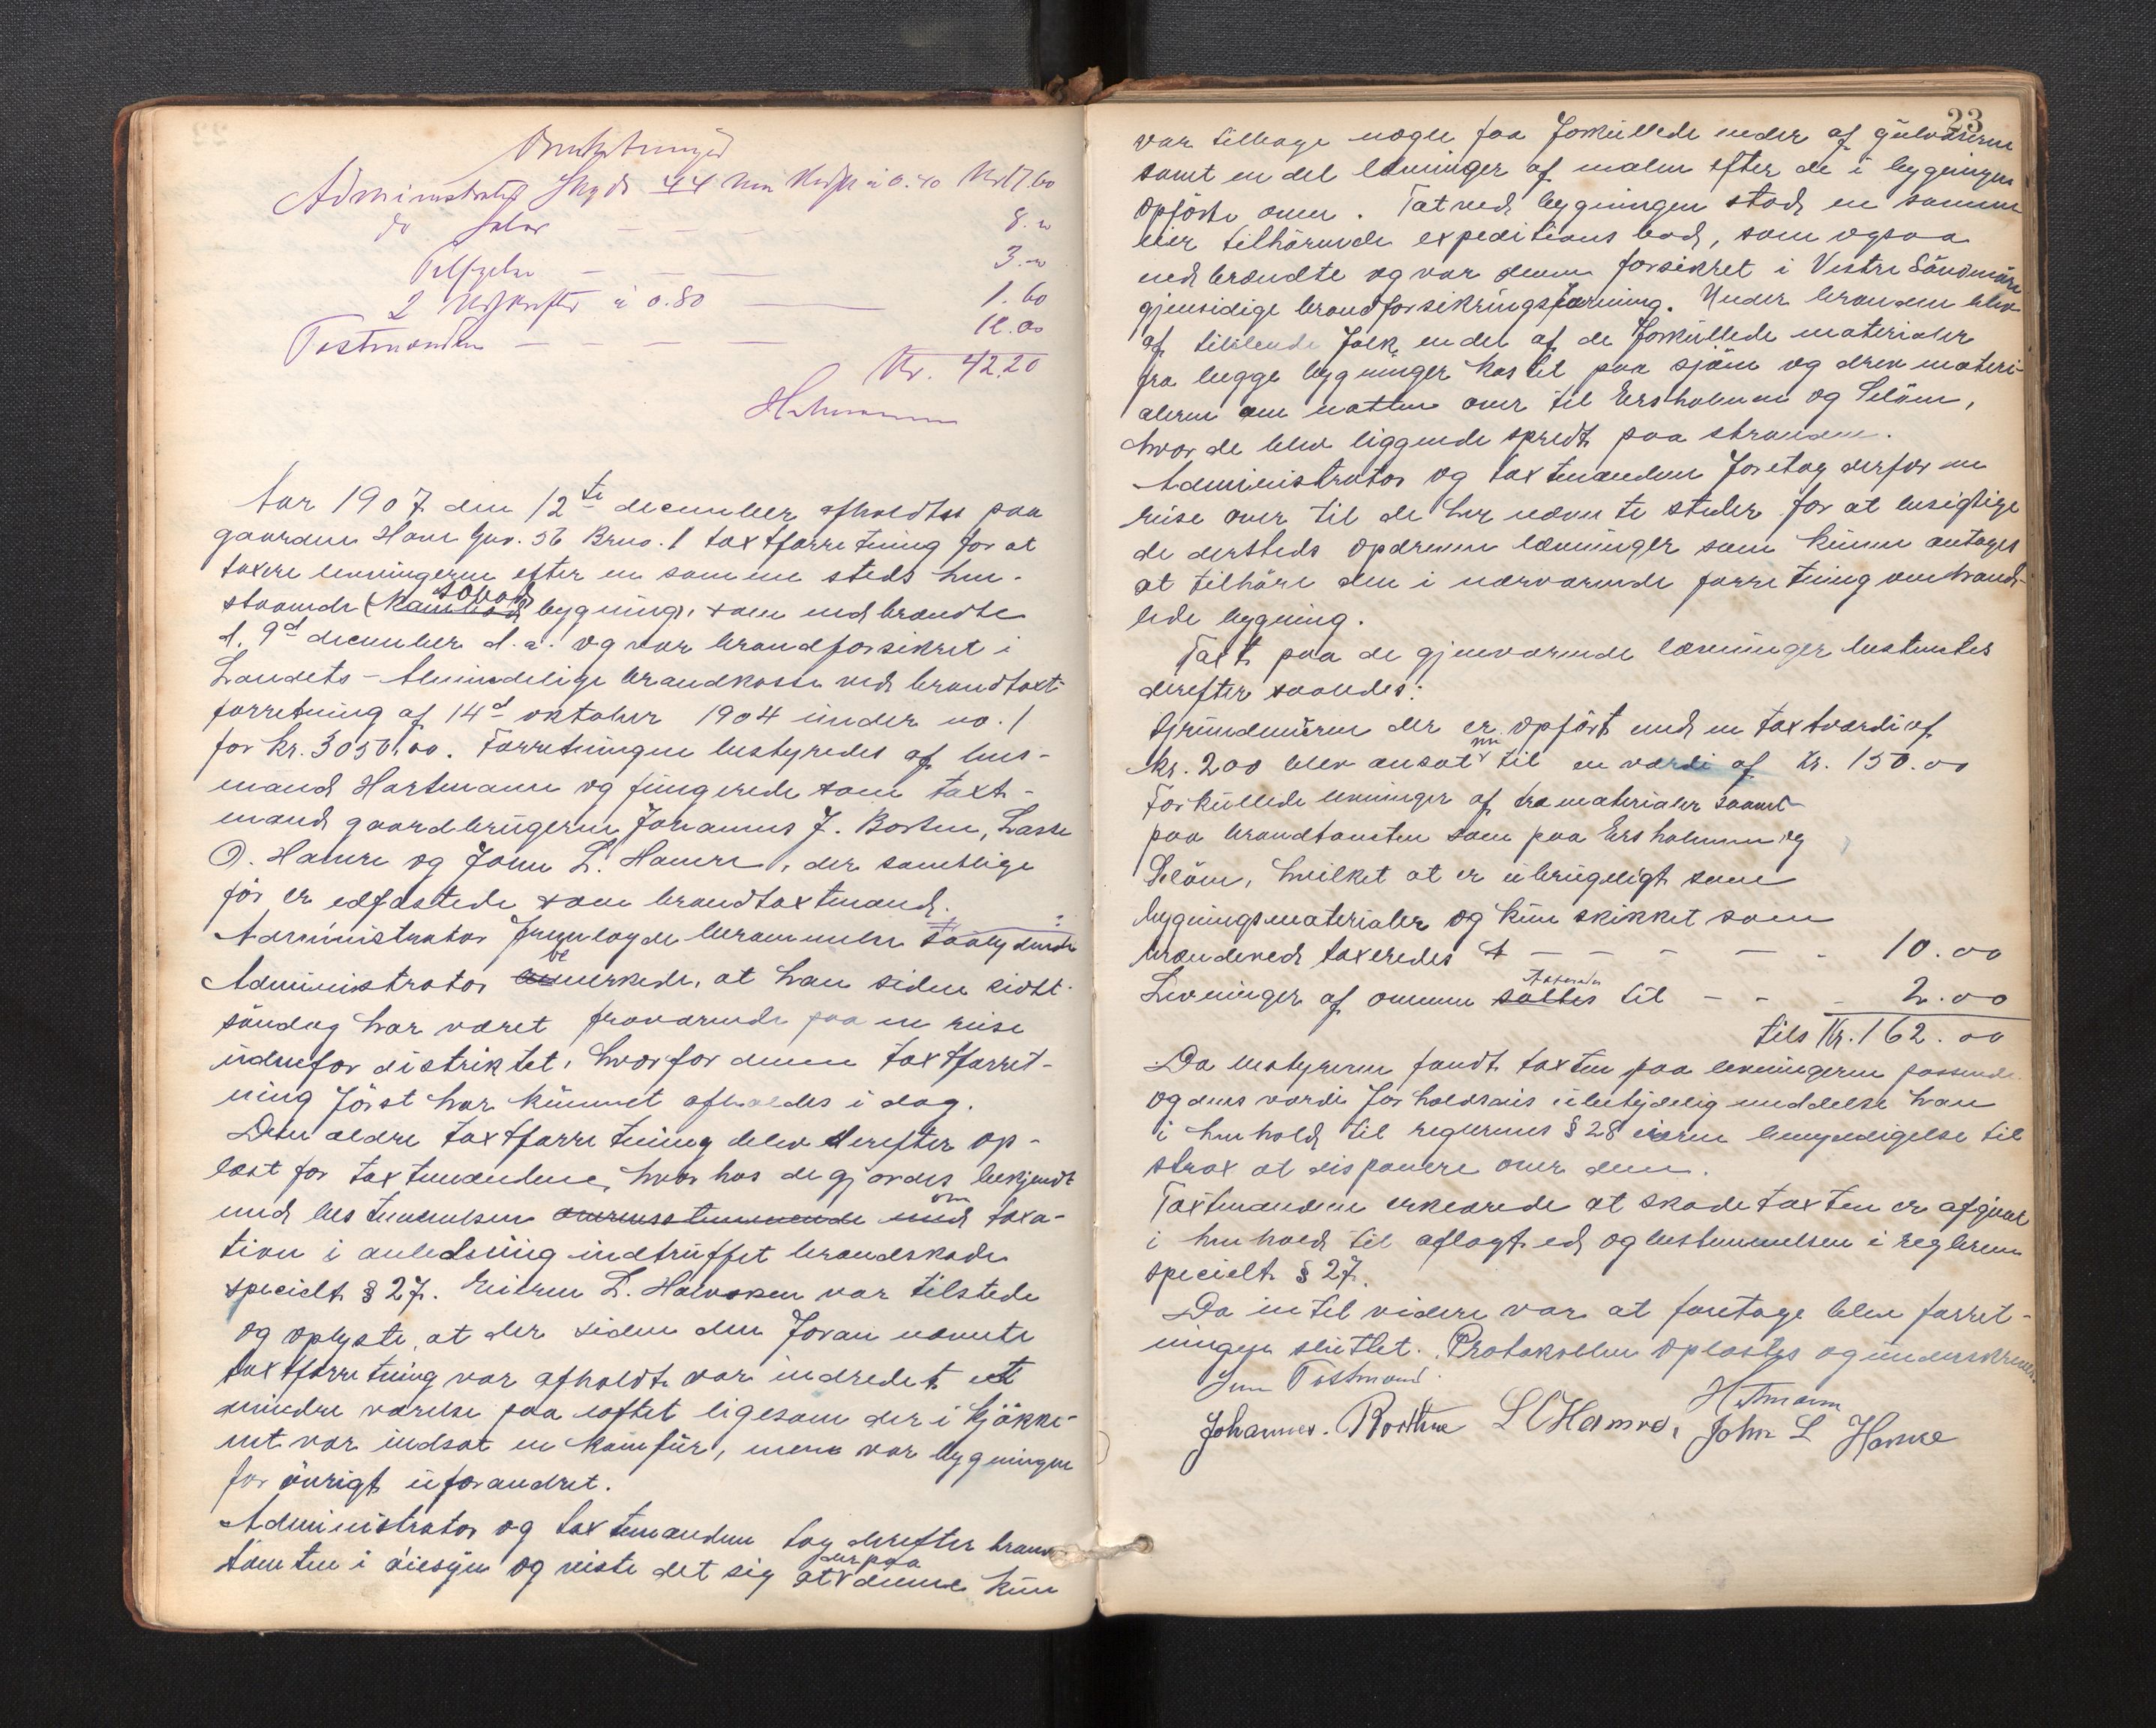 Omkostninger
Administrators Skyds 44 km à 0.40 Kr 17.60
do Salær — — — 8.00
— — — 3.00
2 Udskrifter à 0.80 — 1.60
Taxtmændene — — — — 12.00
Kr. 42.20
Hartmann
Aar 1907 den 12te december afholdtes paa
gaarden Havn Gnr. 56 Brno. 1 taxtforretning for at
taxere levningerne efter en samme steds hen-
staaende bygning, som nedbrændte
d. 9d december d.a. og var brandforsikret i
Landets Almindelige brandkasse ved brandtaxt-
forretning af 14d oktober 1904 under no. 1
for kr. 3050.00. Forretningen bestyredes af lens-
mand Hartmann og fungerede som taxt-
mænd gaardbrugerne Johannes J. Rosten, Lasse
O. Hamre og John L. Hamre, der samtlige
før er edfæstede som brandtaxtmænd.
Administrator fremlagde berammelse saalydende:
Administrator bemerkede, at han siden sidst
søndag har været fraværende paa en reise
udenfor distriktet, hvorfor denne taxtforret-
ning først har kunnet afholdes i dag.
Den ældre taxtforretning blev derefter op-
læst for taxtmændene, hvorhos de gjordes bekjendt
med bestemmelsen overensstemmende med om taxa-
tion i anledning indtruffet brandskade
specielt § 27. Eieren L. Halvorsen var tilstede
og oplyste, at der siden den foran nævnte
taxtforretning var afholdt var indredet et
mindre værelse paa loftet ligesom der i kjøkke-
net var indsat en komfur, men var bygningen
for øvrigt uforandret.
Administrator og taxtmændene tog derefter brand-
tomten i øiesyn og viste det sig at der paa denne kun
23
var tilbage nogle faa forkullede ender af gulvaserne
samt en del levninger af malm efter de i bygningen
opførte ovner. Tæt ved bygningen stod en samme
eier tilhørende expeditions bod, som ogsaa
nedbrændte og var denne forsikret i Vestre Søndmøre
gjensidige brandforsikringsforening. Under branden blev
af tililende folk endel af de forkullede materialer
fra begge bygninger kastet paa sjøen og drev materi-
alerne om natten over til Ersholmen og Seløen,
hvor de blev liggende spredt paa stranden.
Administrator og taxtmændene foretog derfor en
reise over til de her nævnte steder for at besigtige
de dersteds opdrevne levninger som kunne antages
at tilhøre den i nærværende forretning omhand-
lede bygning.
Taxt paa de gjenværende levninger bestemtes
derefter saaledes:
Grundmuren der er opført med en taxtværdi af
kr. 200 blev ansat nu til en værdi af Kr. 150.00
Forkullede levninger af træmaterialer saavel
paa brandtomten som paa Ersholmen og
Seløen, hvilket at er ubrugeligt som
bygningsmaterialer og kun skikket som
brændeved taxeredes t — — — — 10.00
Levninger af ovnene sattes taxeredes til — — — 2.00
tils Kr. 162.00
Da bestyreren fandt taxten paa levningerne passende
og dens værdi forholdsvis ubetydelig meddelte han
i henhold til reglernes § 28 eieren bemyndigelse til
strax at disponere over dem.
Taxtmændene erklærede at skadetaxten er afgivet
i henhold til aflagt ed og bestemmelsen i reglerne
specielt § 27.
Da intet videre var at foretage blev forret-
ningen sluttet. Protokollen oplæstes og underskreves.
Som Taxtmænd: Hartmann
Johannes. Rosten L O Hamre, John L Hamre